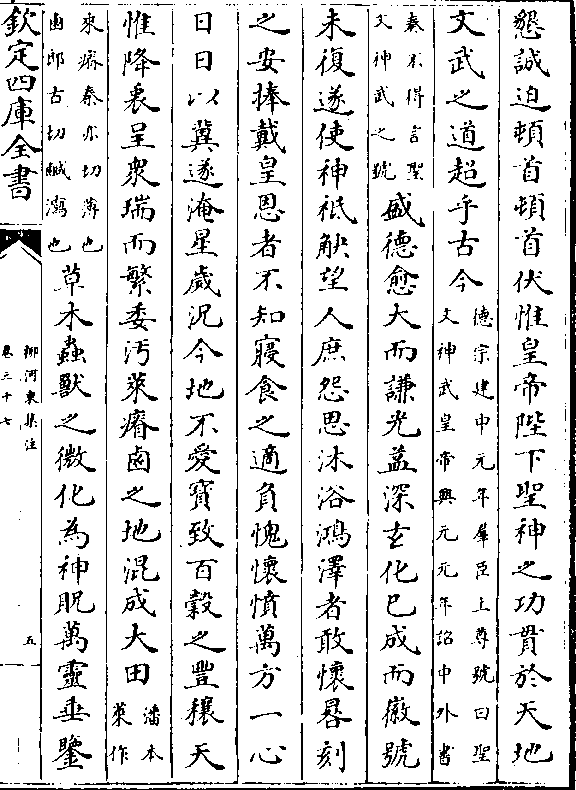 懇誠迫頓首頓首伏惟皇帝陛下聖神之功貫於天地
文武之道超乎古今
德宗建中元年羣臣上尊號曰聖
文神武皇帝興元元年詔中外書
奏不得言聖
文神武之號
盛德愈大而謙光益深玄化已成而徽號
未復遂使神祇觖望人庶怨思沐浴鴻澤者敢懷晷刻
之安捧戴皇恩者不知寢食之適負愧懷憤萬方一心
日日以冀遂淹星歲況今地不愛寶致百穀之豐穰天
惟降衷呈衆瑞而繁委污萊瘠鹵之地混成大田
潘本
萊作
來瘠秦亦切薄也
鹵郎古切鹹瀉也
草木蟲獸之微化為神貺萬靈垂鑒
欽定四庫全書
柳河東集注
卷三十七
五